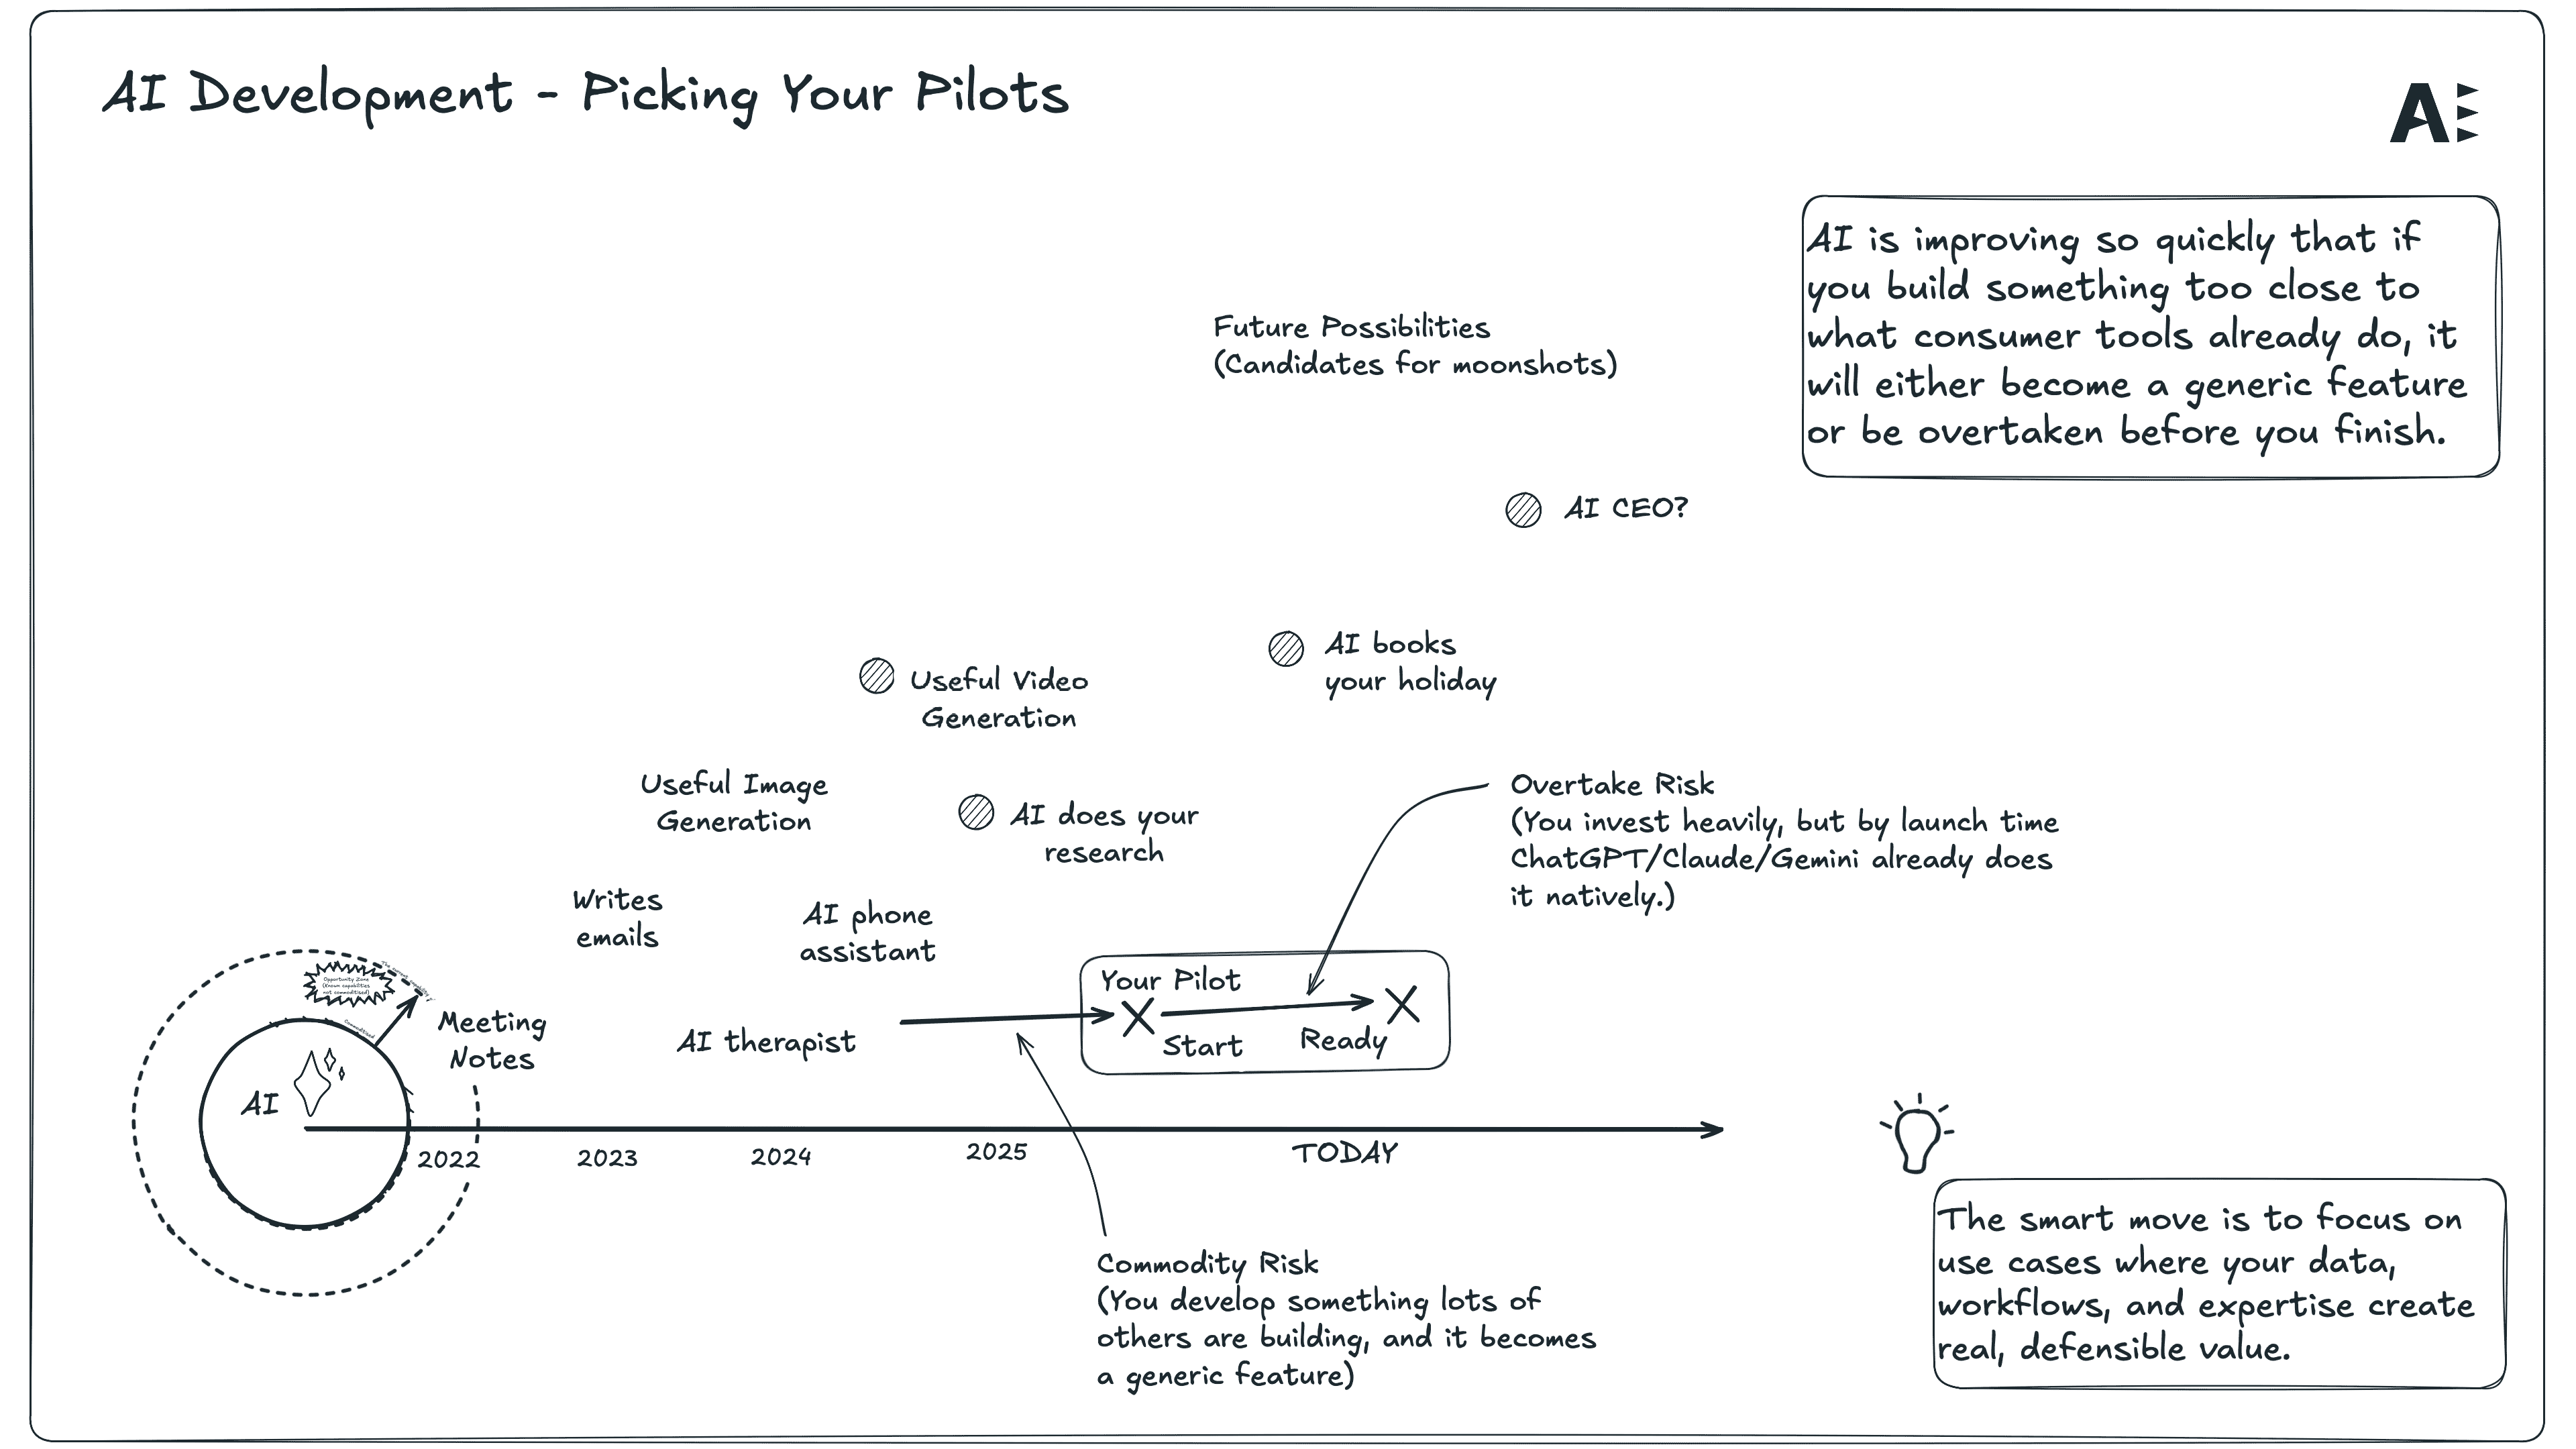 AI Development - Picking Your Pilots
AI is improving so quickly that if
you build something too close to
what consumer tools already do, it
will either become a generic feature
or be overtaken before you finish.
Future Possibilities
(Candidates for moonshots)
AI CEO?
AI books
your holiday
Useful Video
Generation
Useful Image
Generation
AI does your
research
Overtake Risk
(You invest heavily, but by launch time
ChatGPT/Claude/Gemini already does
it natively.)
Writes
emails
AI phone
assistant
Opportunity Zone
(Known capabilities
not commoditised)
Commoditised
Meeting
Notes
AI therapist
Your Pilot
Start
Ready
AI
2022
2023
2024
2025
TODAY
Commodity Risk
(You develop something lots of
others are building, and it becomes
a generic feature)
The smart move is to focus on
use cases where your data,
workflows, and expertise create
real, defensible value.